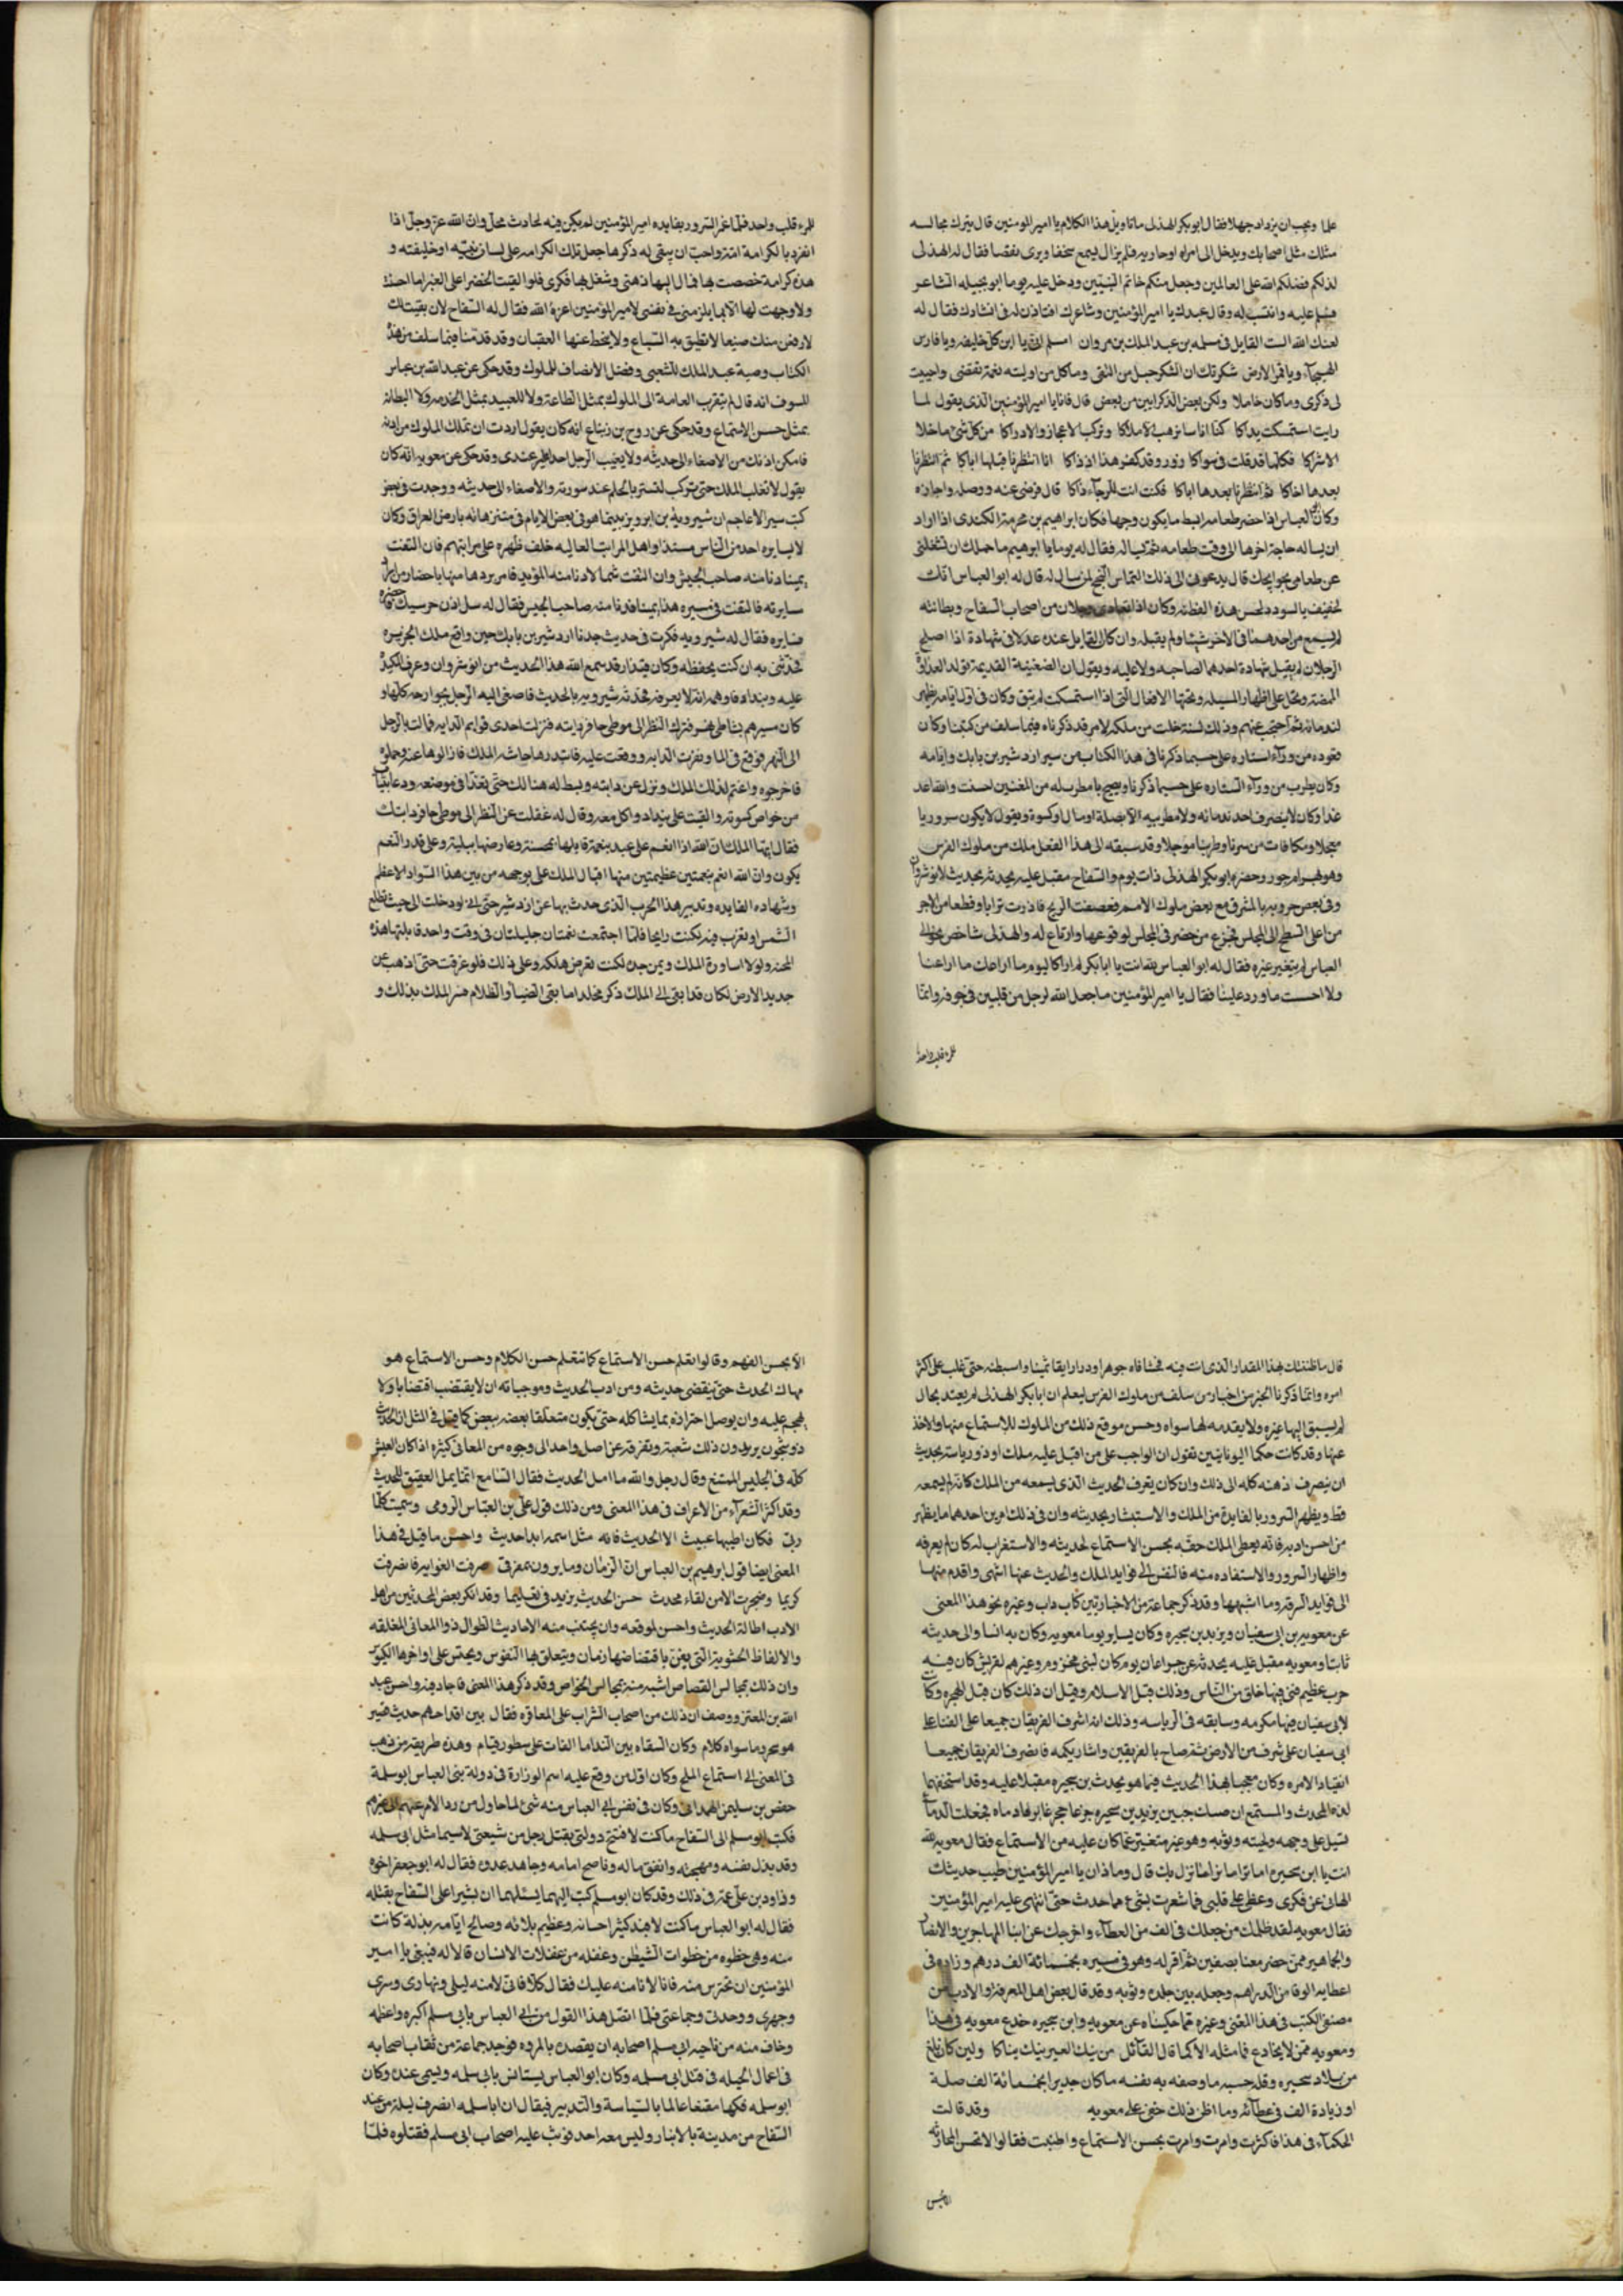 علما ويجب ان يزداد جهلا فقال ابو بكر الهذلى ما تاويل هذا الكلام يا امير المومنين قال يترك مجالسه
مثلك مثل اصحابك ويدخل الى امراه او جاريه فلم يزال يسمع سخفا ويرى نقصا فقال له الهذلى
لذلكم فضلكم الله على العالمين وجعل منكم خاتم النبيين ودخل عليه يوما ابو نجيله الشاعر
فسلم عليه وانتسب له وقال عبدك يا امير المؤمنين وشاعرك افتاذن لى فى انشادك فقال له
لعنك الله الست القايل فى مسلمه بن عبد الملك بن مروان امسلم انى يا ابن كل خليفه ويا فارس
الهيجاء ويا قمر الارض شكرتك ان الشكر حبل من التقى وما كل من اوليته نعمة يقضى واحييت
لى ذكرى وما كان خاملا ولكن بعض الذكر ابين من بعض قال فانا يا امير المؤمنين الذى يقول لما
رايت استمسكت يداكا كنا اناسا نرهب الاملاكا ونركب الاعجاز والاوراكا من كل شئ ما خلا
الاشراكا فكلما قد قلت فى سواكا زور وقد كفر هذا اذ ذاكا انا انتظرنا قبلها اباكا ثم انتظرنا
بعدها اخاكا ثم انتظرنا بعدها اياكا فكنت انت للرجاء ذاكا قال فرضى عنه ووصله واجازه
وكان ابو العباس اذا حضر طعامه ابسط ما يكون وجها فكان ابراهيم بن مخرمة الكندى اذا اراد
ان يساله حاجة اخرها الى وقت طعامه ثم يساله فقال له يوما يا ابراهيم ما حملك ان تشغلنى
عن طعامى بحوايجك قال يدعونى الى ذلك التماس النجح لمن سالنى له قال له ابو العباس انك
لحقيق بالسودد لحسن هذه الفطنه وكان اذا تعادى رجلان من اصحاب السفاح وبطانته
لم يسمع من احدهما فى الاخر شيئا ولم يقبله وان كان القايل عنده عدلا فى شهادة اذا اصلح
الرجلان لم يقبل شهادة احدهما لصاحبه ولا عليه ويقول ان الضغينة القديمة تولد العداوة
وتحمل على اظهار المسالمه وتحتها الافعى التى اذا استمكنت لم تبق وكان فى اول ايامه يظهر
لندمائه ثم احتجب عنهم وذلك لسنة خلت من ملكه لامر قد ذكرناه فيما سلف من كتبنا وكان
قعوده من وراء الستاره على حسب ما ذكرنا فى هذا الكتاب من سير اردشير بن بابك وايامه
وكان يطرب من وراء الستاره على حسب ما ذكرنا ويصيح بالمطرب له من المغنيين احسنت والله اعد
غدا وكان لا ينصرف احد ندمائه ولا مطربيه الا بصلة او مال او كسوة ويقول لا يكون سرورنا
معجلا ومكافات من سرنا وطربنا موجلا وقد سبقه الى هذا الفعل ملك من ملوك الفرس
وهو بهرام جور وحضره ابو بكر الهذلى ذات يوم والسفاح مقبل عليه يحدثه بحديث لانوشروان
وفى بعض حروبه بالمشرق مع بعض ملوك الامم فعصفت الريح فاذرت ترابا وقطعا من الاجر
من اعلى السطح الى المجلس فجزع من حضر فى المجلس لوقوعها وارتاع له والهذلى شاخص نحو ابى
العباس لم يتغير غيره فقال له ابو العباس لله انت يا ابا بكر لم ار كاليوم ما اراعك ما راعنا
ولا احست ما ورد علينا فقال يا امير المؤمنين ما جعل الله لرجل من قلبين فى جوفه وانما
للمرء قلب واحد
للمرء قلب واحد فلما غمر السرور بفايده امير المؤمنين لم يكن فيه لحادث محل وان الله عز وجل اذا
انفرد بالكرامة امته واحب ان يبقى له ذكرها جعل تلك الكرامه على لسان نبيه او خليفته و
هذه كرامة خصصت بها فمال اليها ذهنى وشغل بها فكرى فلو القيت الخضراء على الغبراء ما احسست
ولا وجهت لها الا بما يلزمنى فى نفسى لامير المؤمنين اعزه الله فقال له السفاح لان بقيت لك
لارفعن منك ضبعا لا تطيق به السباع ولا ينحط عنها العقبان وقد قدمنا فيما سلف من هذا
الكتاب وصية عبد الملك للشعبى وفضل الانصاف للملوك وقد حكى عن عبد الله بن عياش
المنتوف انه قال لم يتقرب العامة الى الملوك بمثل الطاعة ولا للعبيد بمثل الخدمه ولا البطانه
بمثل حسن الاستماع وقد حكى عن روح بن زنباع انه كان يقول اردت ان تملك الملوك من اذنه
فامكن اذنك من الاصغاء الى حديثه ولا يعيب الرجل احد عندى وقد حكى عن معويه انه كان
يقول لا تغلب الملك حتى تركب لتستر بالحلم عند سورته والاصغاء الى حديثه ووجدت فى بعض
كتب سير الاعاجم ان شيرويه بن ابرويز بينما هو فى بعض الايام فى متنزهاته بارض العراق وكان
لا يسايره احد من الناس مبتدا واهل المراتب العاليه خلف ظهره على مراتبهم فان التفت
يمينا دنا منه صاحب الجيش وان التفت شمالا دنا منه المؤبد فامر بردها منها باحضار من اراد
سايرته فالتفت فى مسيره هذا يمينا فدنا منه صاحب الجيش فقال له سل اذن حرسيك
فسايره فقال له شيرويه فكرت فى حديث جدنا اردشير بن بابك حين واقع ملك الجزيره
فحدثنى به ان كنت تحفظه وكان قيدار قد سمع الله هذا الحديث من انوشروان وعرف المكيدة
عليه وبنداد فاوهمه انه لا يعرفه فحدثه شيرويه بالحديث فاصغى اليه الرجل بجوارحه كلها و
كان مسيرهم بشاطى نهر فترك النظر الى موطى حافر دابته فزلت احدى قوايم الدابه فمالت بالرجل
الى النهر فوقع فى الماء ونفرت الدابه ووقعت عليه فابتدرها حاشية الملك فازالوها عنه وحملوه
فاخرجوه واغتم لذلك الملك ونزل عن دابته وبسط له هنالك حتى تغدا فى موضعه ودعا بثياب
من خواص كسوته والقيت على بنداد واكل معه وقال له غفلت عن النظر الى موطى حافر دابتك
فقال ايها الملك ان الله اذا انعم على عبد بنعمة قابلها بمحنة وعارضها ببلية وعلى قدر النعم
يكون وان الله انعم بنعمتين عظيمتين منها اقبال الملك على بوجهه من بين هذا السواد الاعظم
وبشهاده الفايده وتدبير هذا الحرب الذى حدث بها عن اردشير حتى انى لو دخلت الى حيث تطلع
الشمس او تغرب فيه لكنت رابحا فلما اجتمعت نعمتان جليلتان فى وقت واحد قابلتها هذه
المحنه ولولا اساورة الملك ويمن جده لكنت تعرض هلكه وعلى ذلك فلو غرقت حتى اذهب عن
جديد الارض لكان قد ابقى لى الملك ذكر مخلد اما بقى الضياء والظلام فسر الملك بذلك و
قال ما ظننتك بهذا المقدار الذى انت فيه فحشا فاه جوهرا ودرا رايقا ثمينا واستبطنه حتى غلب على اكثر
امره وانما ذكرنا الخبر من اخبار من سلف من ملوك الفرس ليعلم ان ابا بكر الهذلى لم يعتد بحال
لم يسبق اليها غيره ولا يقدمه لها سواه وحسن موقع ذلك من الملوك للاستماع منها والاخذ
عنها وقد كانت حكما اليونانيين تقول ان الواجب على من اقبل عليه ملك او ذو رياسة بحديث
ان يصرف اذهنه كله الى ذلك وان كان يعرف الحديث الذى يسمعه من الملك كانه لم يسمعه
قط ويظهر السرور بالفايدة من الملك والاستبشار بحديثه وان فى ذلك امرين احدهما ما يظهر
من احسن ادبه فانه يعطى الملك حقه بحسن الاستماع لحديثه والاستغراب له كان لم يعرفه
واظهار السرور والاستفاده منه فالنفس الى فوايد الملك والحديث عنها اشهى واقدم منها
الى فوايد السوقه وما اشبهها وقد ذكر جماعة من الاخباريين كابن داب وغيره نحو هذا المعنى
عن معويه بن ابى سفيان ويزيد بن سحيره وكان يساير يوما معويه وكان به انسا والى حديثه
ثابتا ومعويه مقبل عليه يحدثه عن جراعان يوم كان لبنى مخزوم وغيرهم لقريش كان فيه
حرب عظيم فنى فيها خلق من الناس وذلك قبل الاسلام وقيل ان ذلك كان قبل الهجره وكان
لابى سفيان فيها مكرمه وسابقه فى الرياسه وذلك انه اشرف الفريقان جميعا على الفناء علا
ابى سفيان على شرف من الارض ثم صاح بالفريقين واشار بكمه فانصرف الفريقان جميعا
انقيادا لامره وكان معجبا بهذا الحديث فبينما هو يحدث بن سحيره مقبلا عليه وقد استخفهما
لذة المحدث والمستمع ان صك جبين يزيد بن سحيره جزعا حجر غاير فادماه فجعلت الدماء
تسيل على وجهه ولحيته وثوبه وهو غير متغير عما كان عليه من الاستماع فقال معويه لله
انت يا ابن سحيره اما ترا ما نزل بك قال وما ذاك يا امير المؤمنين طيب حديثك
الهانى عن فكرى وعطى على قلبى فما شعرت بشئ مما حدث حتى انبهنى عليه امير المؤمنين
فقال معويه لقد ظلمك من جعلك فى الف من العطاء واخرجك عن ابناء المهاجرين والانصار
والجماهير ممن حضر معنا بصفين ثم اقر له وهو فى مسيره بخمسمائة الف درهم وزاده فى
اعطايه الوفا من الدراهم وجعله بين جلده وثوبه وقد قال بعض اهل المعرفة والادب من
مصنفى الكتب فى هذا المعنى وغيره مما حكيناه عن معويه وابن سحيره خدع معويه فى هذا
ومعويه ممن لا يخادع فما مثله الا كما قال القائل من ينك العير ينك نياكا ولئن كان بلغ
من بلاد سحيره وقلة حسه ما وصفه به نفسه ما كان جديرا بخمسمائة الف صلة
او زيادة الف فى عطائه وما اظن ذلك خفى على معويه وقد قالت
الحكماء فى هذا فاكثرت وامرت وامرت بحسن الاستماع واطنبت فقالوا لا تحسن المحادثة
الا بحسن
الا بحسن الفهم وقالوا تعلم حسن الاستماع كما تتعلم حسن الكلام وحسن الاستماع هو
مهالك الحدث حتى ينقضى حديثه ومن ادب الحديث وموجباته ان لا يقتضب اقتضابا ولا
يهجم عليه وان يوصل اجزاؤه بما يشاكله حتى يكون متعلقا بعضه ببعض كما قيل فى المثل ان الحديث
ذو شجون يريدون ذلك شعبته وتفرقه عن اصل واحد الى وجوه من المعانى كثيره اذا كان العيش
كله فى الجليس الممتع وقال رجل والله ما امل الحديث فقال السامع انما يمل العتيق الحديث
وقد اكثر الشعراء من الاعراف فى هذا المعنى ومن ذلك قول على بن العباس الرومى وسئمت كلما
ربى فكان اطيبها عبيث الا الحديث فانه مثل اسمه ابدا حديث واحسن ما قيل فى هذا
المعنى ايضا قول ابرهيم بن العباس ان الزمان وما يرون بمفرقى صرفت الغوايه فانصرفت
كريما وضجرت الا من لقاء محدث حسن الحديث يزيد فى تعليما وقد انكر بعض المحدثين من اهل
الادب اطالة الحديث واحسن لموقعه وان يجتنب منه الاحاديث الطوال ذو المعانى المغلقه
والالفاظ الحشوية التى يفنى باقتضاضها زمان ويتعلق بها النفوس ويحتبس على اواخرها الكؤس
وان ذلك بمجالس القصاص اشبه منه بمجالس الخواص وقد ذكر هذا المعنى فاجاد فيه واحسن عبد
الله بن المعتز ووصف ان ذلك من اصحاب الشراب على المعاقره فقال بين اقداحهم حديث قصير
هو سحر وما سواه كلام وكان السقاه بين الندامى الفات على سطور قيام وهذه طريقة من ذهب
فى المعنى الى استماع الملح وكان اول من وقع عليه اسم الوزارة فى دولة بنى العباس ابو سلمة
حفص بن سليمن الهمدانى وكان فى نفس ابى العباس منه شئ لما حاول من رد الامر عنهم الى غيرهم
فكتب ابو مسلم الى السفاح ما كنت لافتتح دولتى بقتل رجل من شيعتى لاسيما مثل ابى سلمه
وقد بذل نفسه ومهجته وانفق ماله وناصح امامه وجاهد عدوه فقال له ابو جعفر اخوه
وداود بن على عمه فى ذلك وقد كان ابو مسلم كتب اليهما يسئلهما ان يشيرا على السفاح بقتله
فقال له ابو العباس ما كنت لافسد كثير احسانه وعظيم بلائه وصالح ايامه بذلة كانت
منه وهى خطوه من خطوات الشيطن وغفله من غفلات الانسان قالا له فينبغى يا امير
المؤمنين ان تحترس منه فانا لا نامنه عليك فقال كلا فانى لامنه ليلى ونهارى وسرى
وجهرى ووحدتى وجماعتى فلما اتصل هذا القول من ابى العباس بابى مسلم اكبره واعظمه
وخاف منه من ناحيه ابى سلم اصحابه ان يقصده بالمروه فوجد جماعة من ثقات اصحابه
فى اعمال الحيله فى قتل ابى سلمه وكان ابو العباس يستانس بابى سلمه ويسمى عنده وكان
ابو سلمه فكها مقنعا عالما بالسياسة والتدبير فيقال ان ابا سلمه انصرف ليلة من عند
السفاح من مدينته بالانبار وليس معه احد فوثب عليه اصحاب ابى مسلم فقتلوه فلما